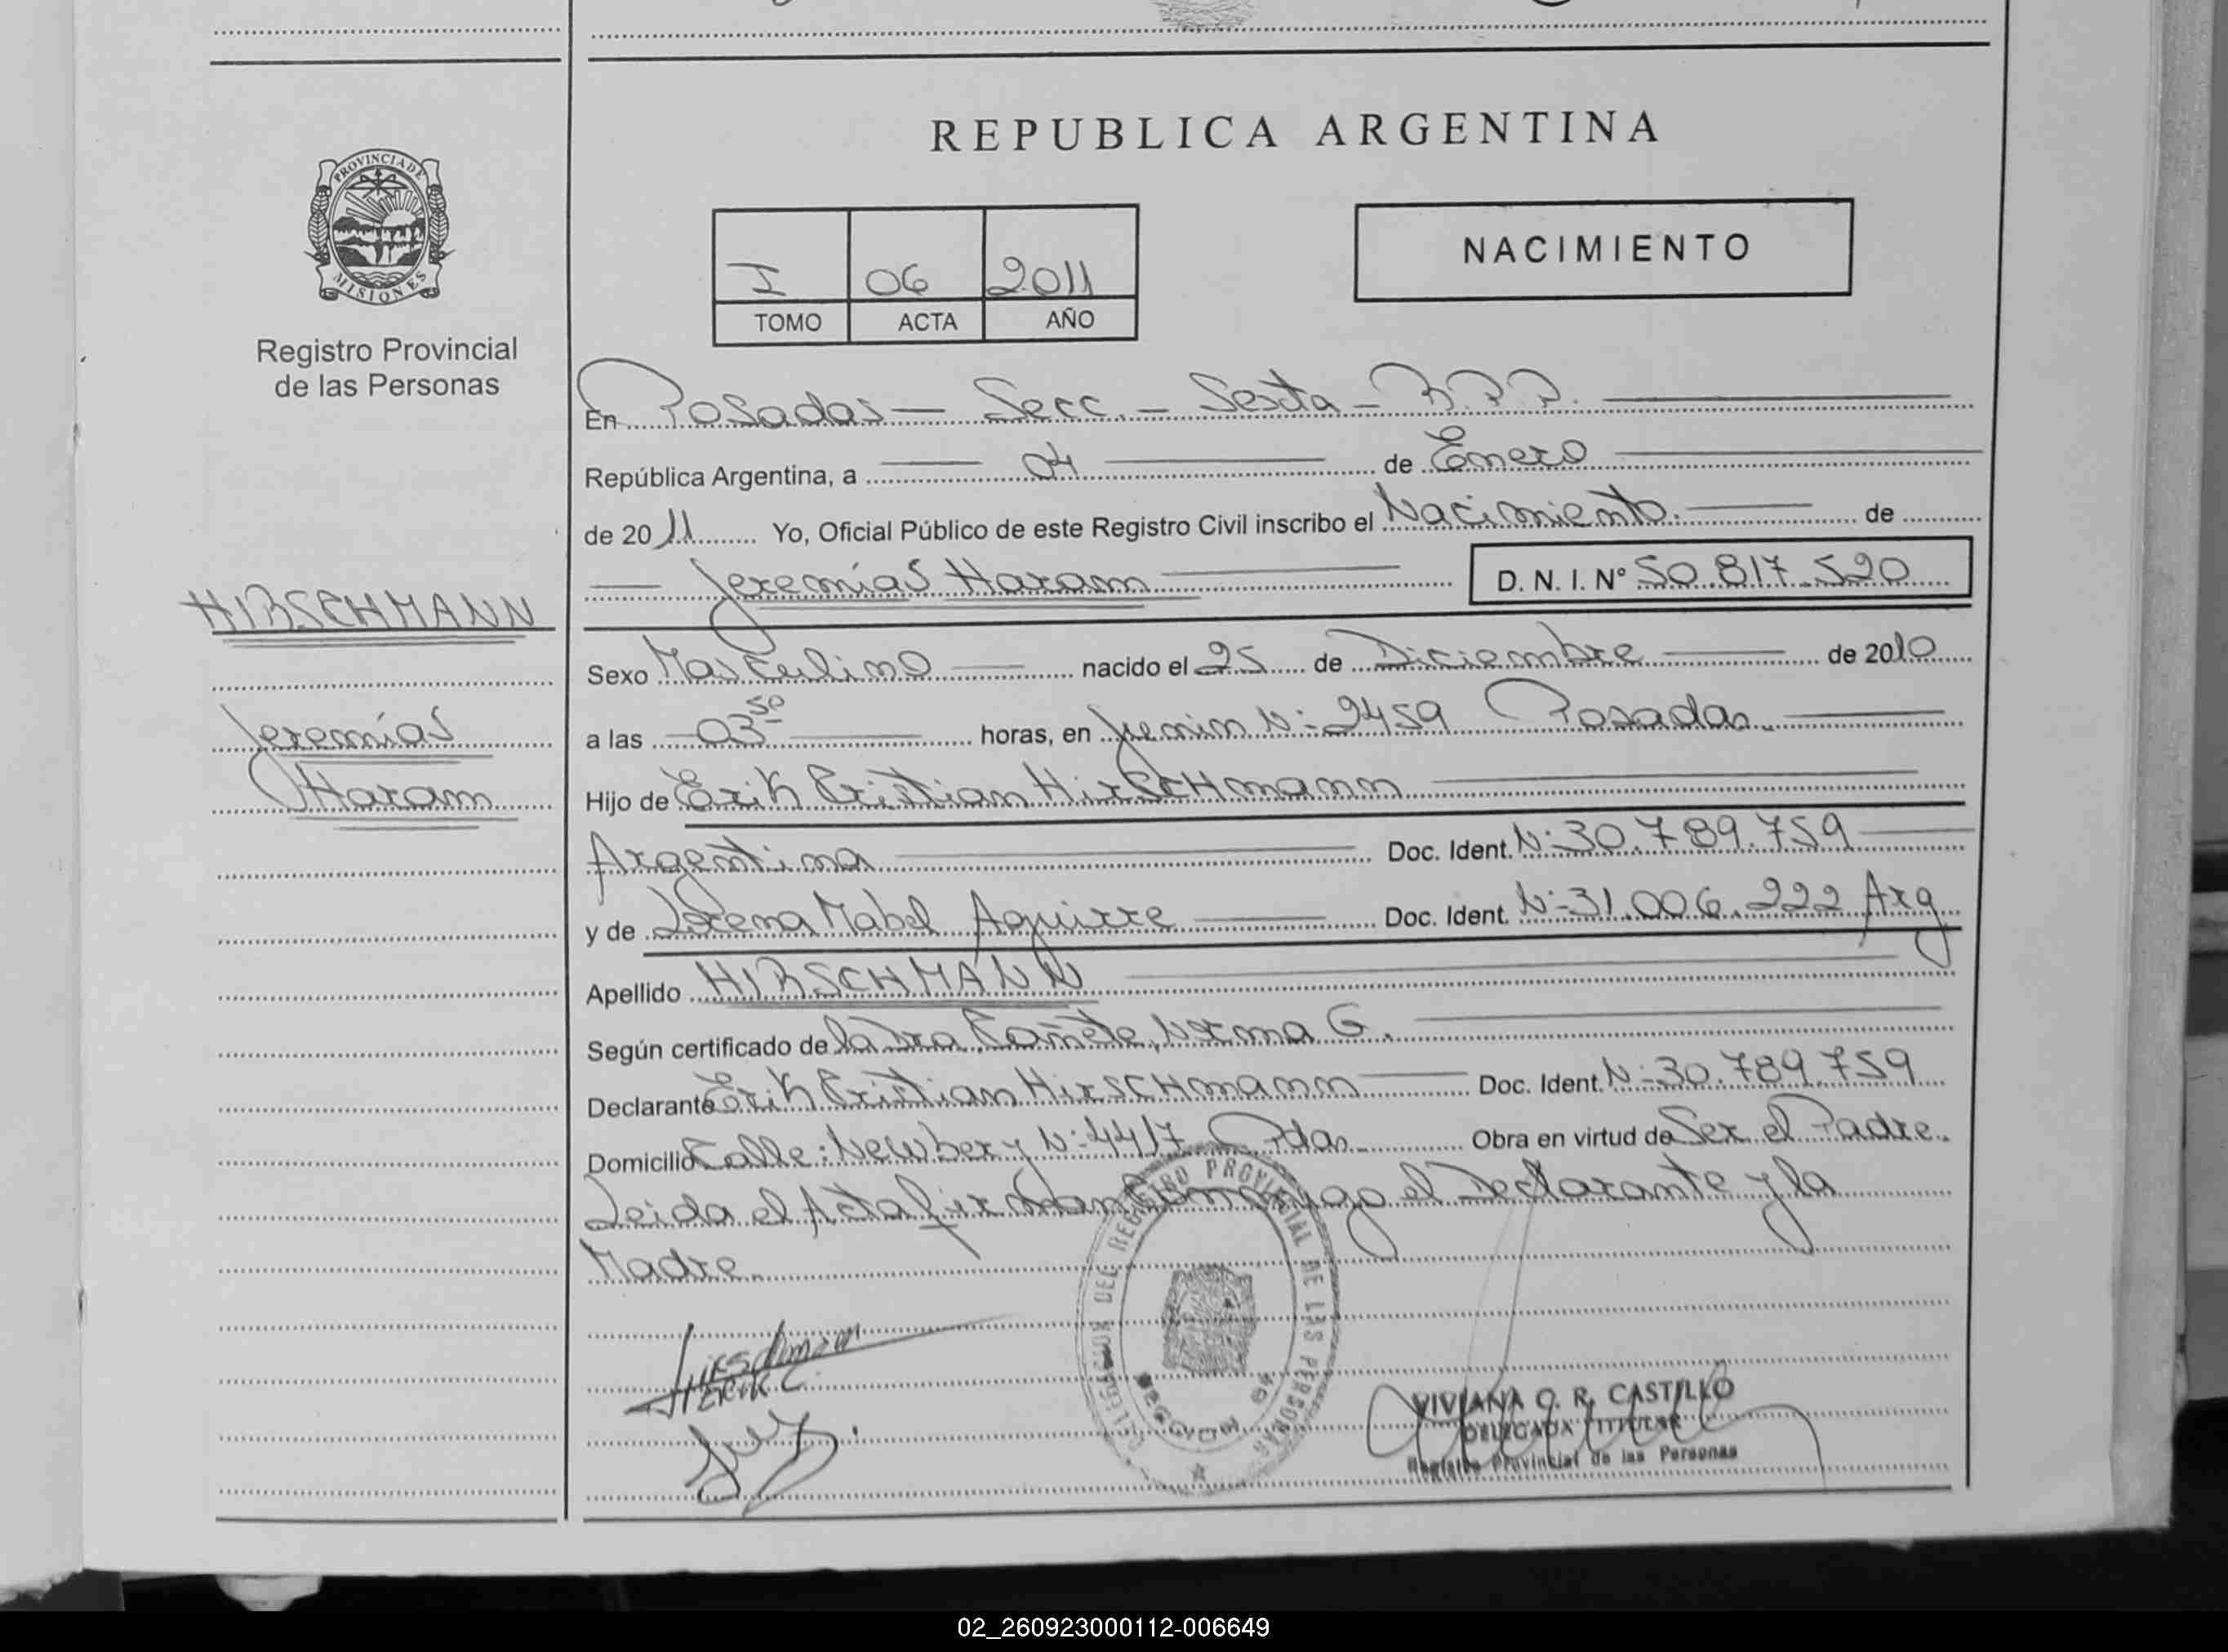 REPUBLICA ARGENTINA
PROVINCIA DE
MISIONES
Registro Provincial
de las Personas
NACIMIENTO
I 06 2011
TOMO ACTA AÑO
En Posadas — Secc. — Sexta —
República Argentina, a 04 de Enero
de 2011 Yo, Oficial Público de este Registro Civil inscribo el Nacimiento. de
Jeremías Haram D. N. I. N° 50.817.520
HIRSCHMANN
Jeremías
Haram
Sexo Masculino nacido el 25 de Diciembre de 2010
a las 03 50 horas, en Junin N: 2459 Posadas
Hijo de Erik Cristian HirSCHmann
Argentina Doc. Ident. N: 30.789.759
y de Lorena Mabel Aguirre Doc. Ident. N: 31.006.222 Arg
Apellido HIRSCHMANN
Según certificado de la Dra Cañete, Norma G.
Declarante Erik Cristian HirSCHmann Doc. Ident. N: 30.789.759
Domicilio Calle: Newbery N: 4417 Pdas. Obra en virtud de Ser el Padre.
Leida el Acta firman Conmigo el Declarante y la
Madre.
REGISTRO PROVINCIAL DE LAS PERSONAS
VIVIANA C. R. CASTILLO
DELEGADA TITULAR
Registro Provincial de las Personas
02_260923000112-006649